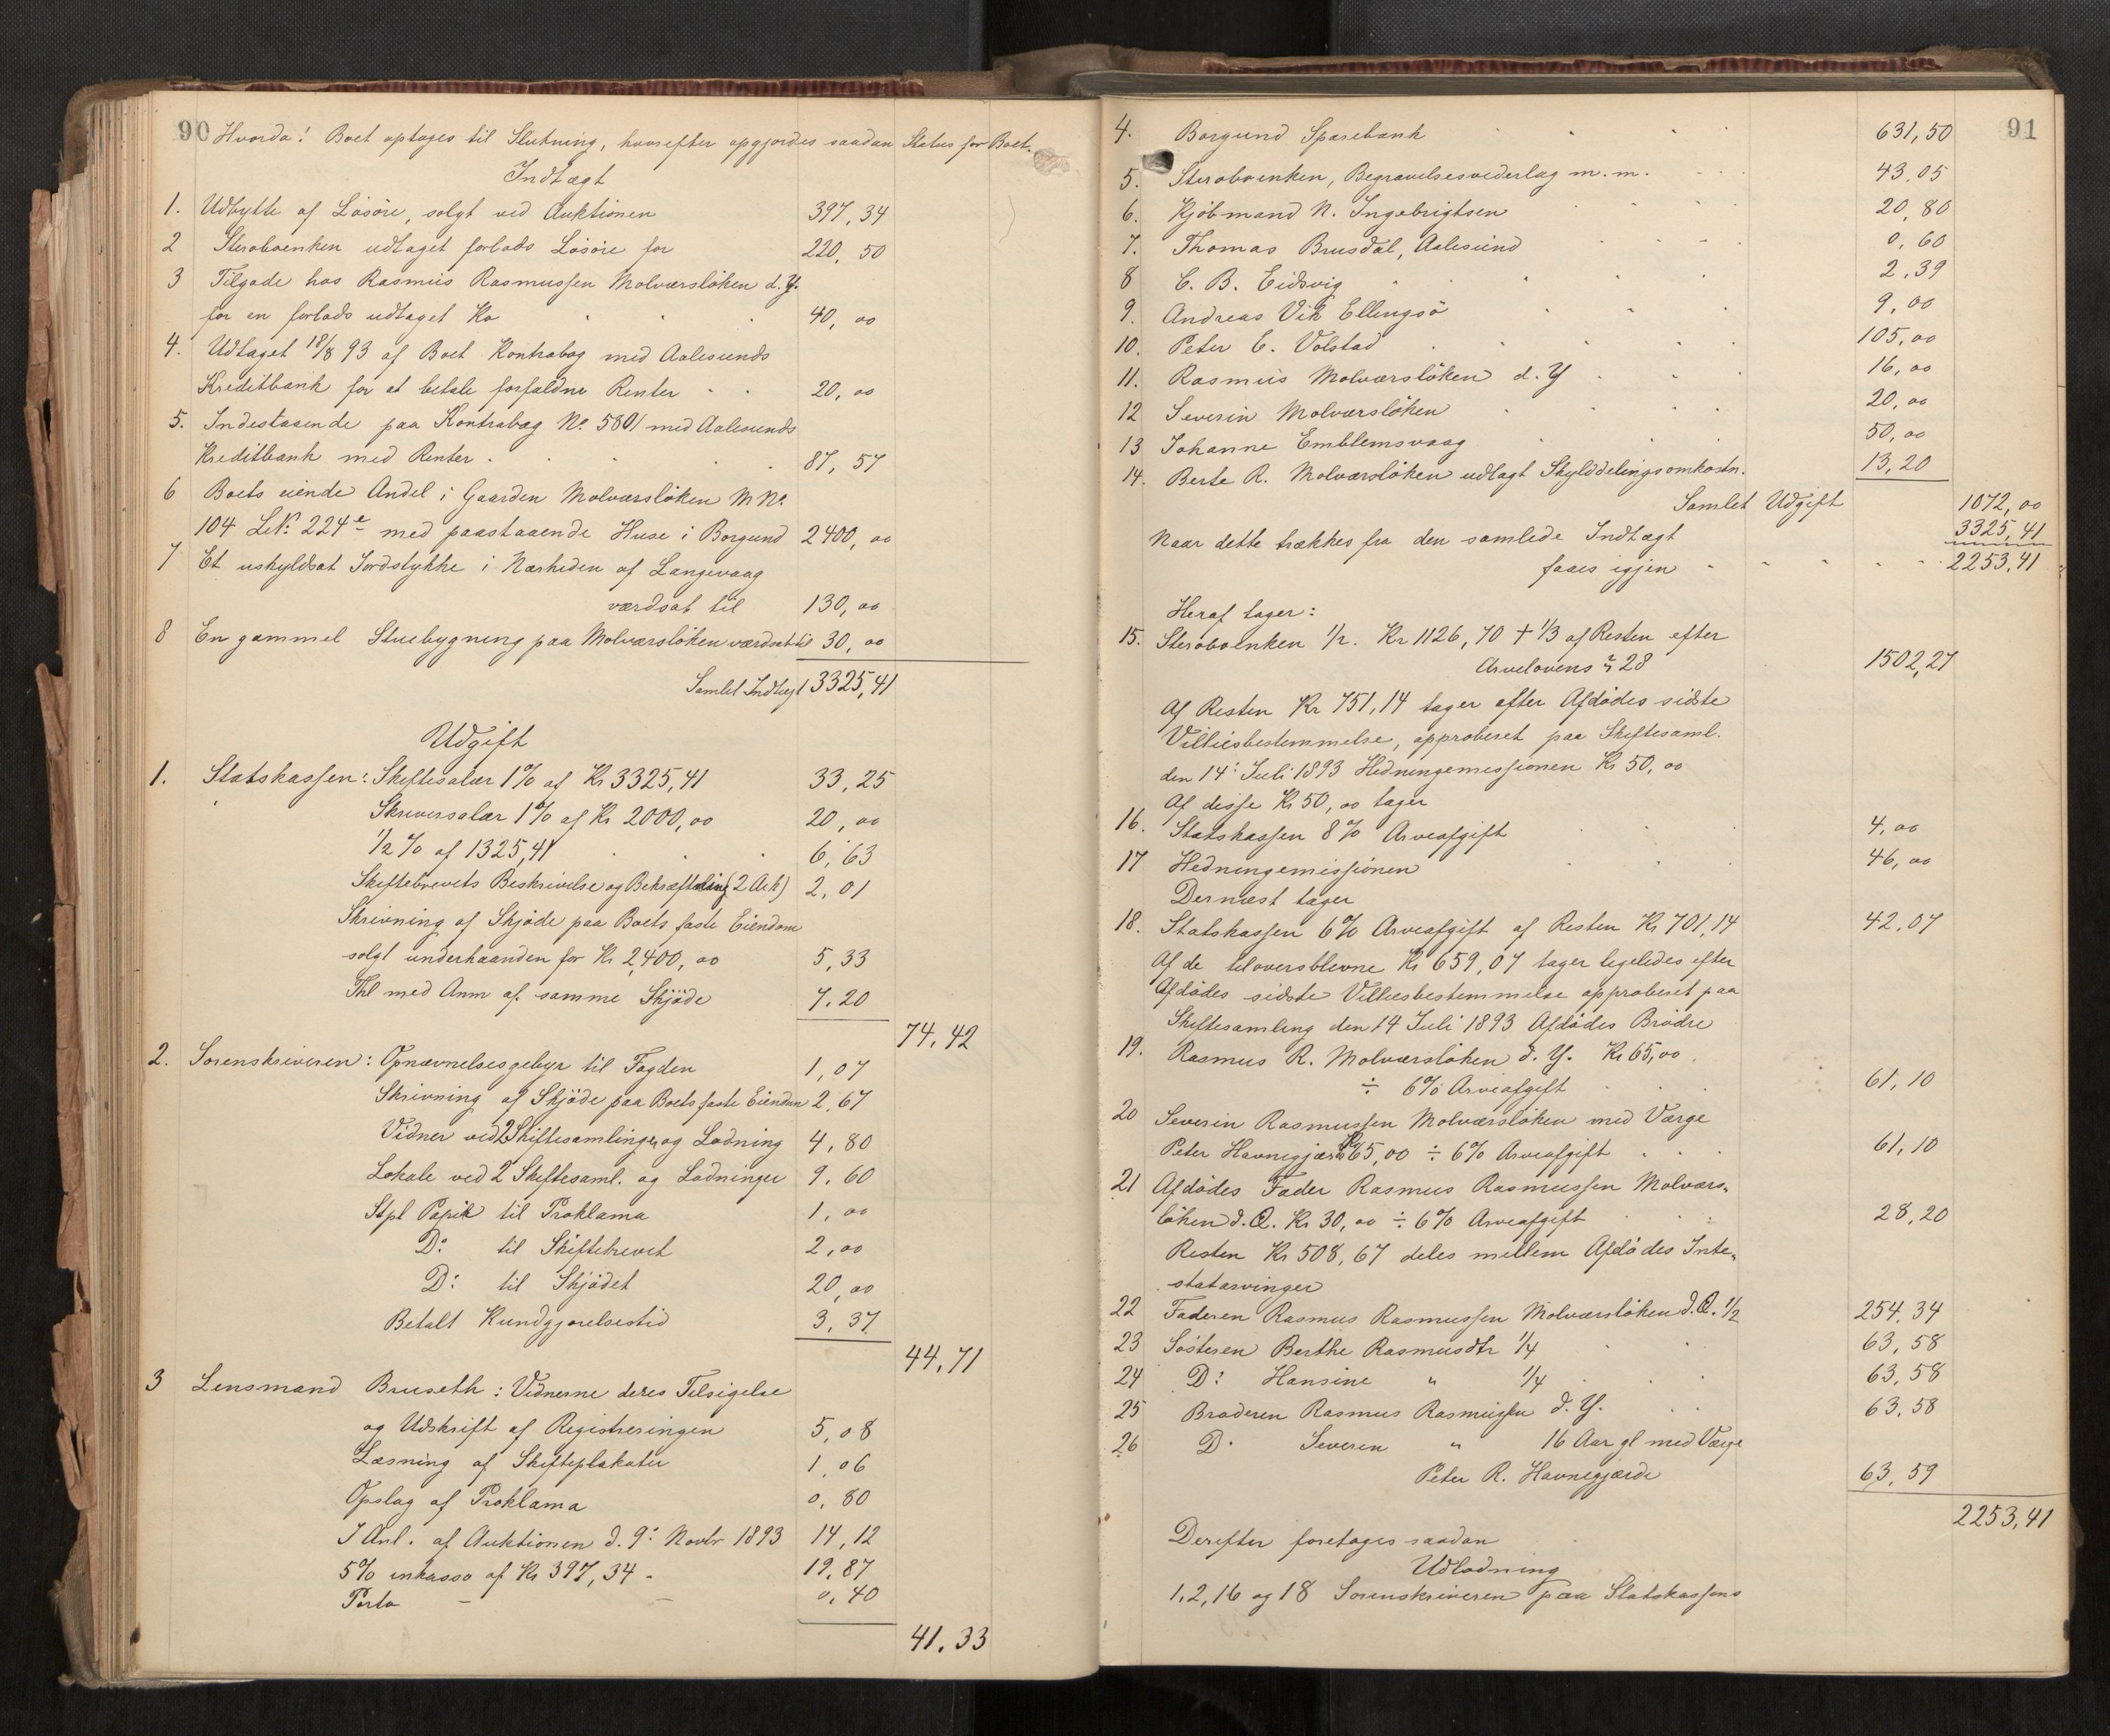 90 Hvorda! Boet optages til Slutning, hvorefter opgjordes saadan Status for Boet.
Indtægt
1. Udbytte af Løsøre, solgt ved Auktionen 397,34
2 Sterboenken udtaget forlods Løsøre for 220,50
3 Tilgode hos Rasmus Rasmussen Molværsløken d.Y.
for en forlods udtaget Ko 40,00
4. Udtaget 18/8 93 af Boet Kontrabog med Aalesunds
Kreditbank for at betale forfaldne Renter 20,00
5. Indestaaende paa Kontrabog No. 5801 med Aalesunds
Kreditbank med Renter 87,57
6 Boets eiende Andel i Gaarden Molværsløken M No.
104 LNo. 224e med paastaaende Huse i Borgund 2400,00
7 Et uskyldsat Jordstykke i Nærheden af Langevaag
værdsat til 130,00
8 En gammel Stuebygning paa Molværsløken værdsat til 30,00
Samlet Indtægt 3325,41
Udgift
1. Statskassen: Skiftesalær 1% af Kr 3325,41 33,25
Skriversalær 1% af Kr 2000,00 20,00
1/2% af 1325,41 6,63
Skiftebrevets Beskrivelse og Bekræftelse (2 Ark) 2,01
Skrivning af Skjøde paa Boets faste Eiendom
solgt underhaanden for Kr 2400,00 5,33
Thl med Anm af samme Skjøde 7,20
74,42
2. Sorenskriveren: Opnævnelsesgebyr til Fogden 1,07
Skrivning af Skjøde paa Boets faste Eiendom 2,67
Vidner ved 2 Skiftesamlinger og Lodning 4,80
Lokale ved 2 Skiftesaml. og Lodninger 9,60
Stpl Papir til Proklama 1,00
Do til Skiftebrevet 2,00
Do til Skjødet 20,00
Betalt Kundgjørelsestid 3,37
44,71
3 Lensmand Bruseth: Vidnerne deres Tilsigelse
og Udskrift af Registreringen 5,08
Læsning af Skifteplakater 1,06
Opslag af Proklama 0,80
I Anl. af Auktionen d. 9: Novbr 1893 14,12
5% inkasso af Kr 397,34 - 19,87
Porto - - 0,40
41,33
91
4. Borgund Sparebank 631,50
5. Sterboenken, Begravelsesvederlag m.m. 43,05
6. Kjøbmand N. Ingebrigtsen 20,80
7. Thomas Brusdal, Aalesund 0,60
8 C. B. Eidsvig 2,39
9. Andreas Vik Ellingsø 9,00
10. Peter E. Volstad 105,00
11. Rasmus Molværsløken d.Y 16,00
12 Severin Molværsløken 20,00
13 Johanne Emblemsvaag 50,00
14. Berte R. Molværsløken udlagt Skylddelingsomkostn. 13,20
Samlet Udgift 1072,00
Naar dette trækkes fra den samlede Indtægt 3325,41
faaes igjen 2253,41
Heraf tager:
15. Sterboenken 1/2. Kr 1126,70 + 1/3 af Resten efter
Arvelovens § 28 1502,27
Af Resten Kr 751,14 tager efter Afdødes sidste
Villiesbestemmelse, approberet paa Skiftesaml.
den 14: Juli 1893 Hedningemissionen Kr 50,00
Af disse Kr 50,00 tager
16. Statskassen 8% Arveafgift 4,00
17 Hedningemissionen 46,00
Dernæst tager
18. Statskassen 6% Arveafgift af Resten Kr 701,14 42,07
Af de tiloversblevne Kr 659,07 tager ligeledes efter
Afdødes sidste Villiesbestemmelse approberet paa
Skiftesamling den 14 Juli 1893 Afdødes Brødre
19. Rasmus R. Molværsløken d.Y. Kr 65,00
÷ 6% Arveafgift 61,10
20 Severin Rasmussen Molværsløken med Værge
Peter Havnegjærde Kr 65,00 ÷ 6% Arveafgift 61,10
21 Afdødes Fader Rasmus Rasmussen Molværs-
løken d.Æ. Kr 30,00 ÷ 6% Arveafgift 28,20
Resten Kr 508,67 deles mellem Afdødes Inte-
statarvinger
22 Faderen Rasmus Rasmussen Molværsløken d.Æ. 1/2 254,34
23 Søsteren Berthe Rasmusdtr 1/4 63,58
24 Do Hansine " 1/4 63,58
25 Broderen Rasmus Rasmussen d.Y. 63,58
26 Do Severin " 16 Aar gl med Værge
Peter R. Havnegjærde 63,59
2253,41
Derefter foretages saadan
Udlodning
1,2,16 og 18 Sorenskriveren paa Statskassens